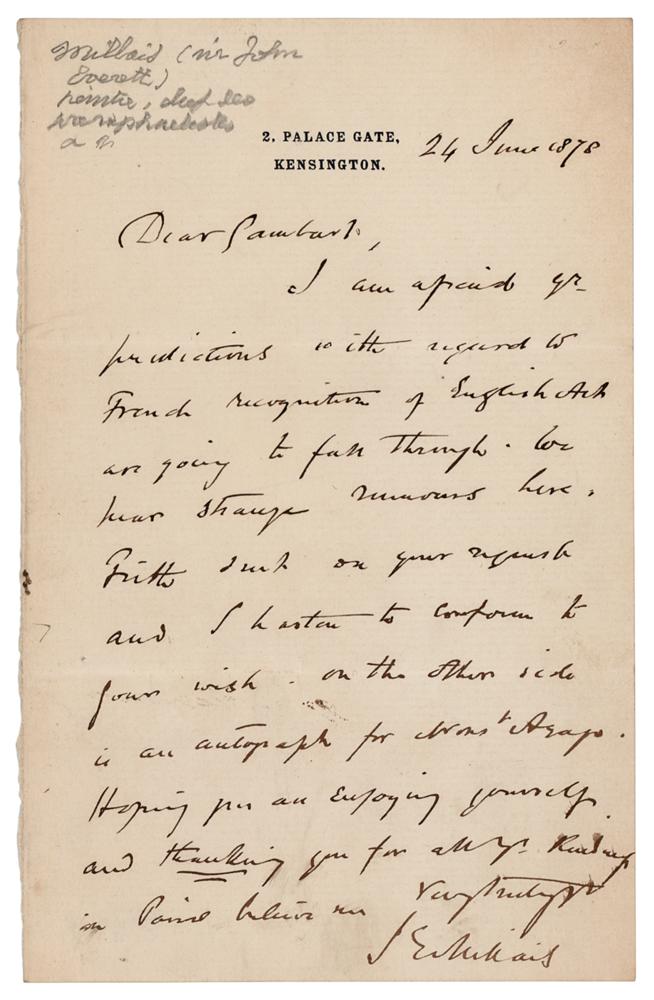 Millais (sir John
Everett)
peintre, chef des
preraphaelistes
2, PALACE GATE,
KENSINGTON.
24 June 1878
Dear Gambart,
I am afraid yr
predictions with regard to
French recognition of English Art
are going to fall through. We
hear strange rumours here.
Frith sent on your request
and I hasten to conform to
your wish. on the other side
is an autograph for Monsr
Hoping you are enjoying yourself
and thanking you for all yr Kindness
in Paris believe me Very truly yrs
J E Millais